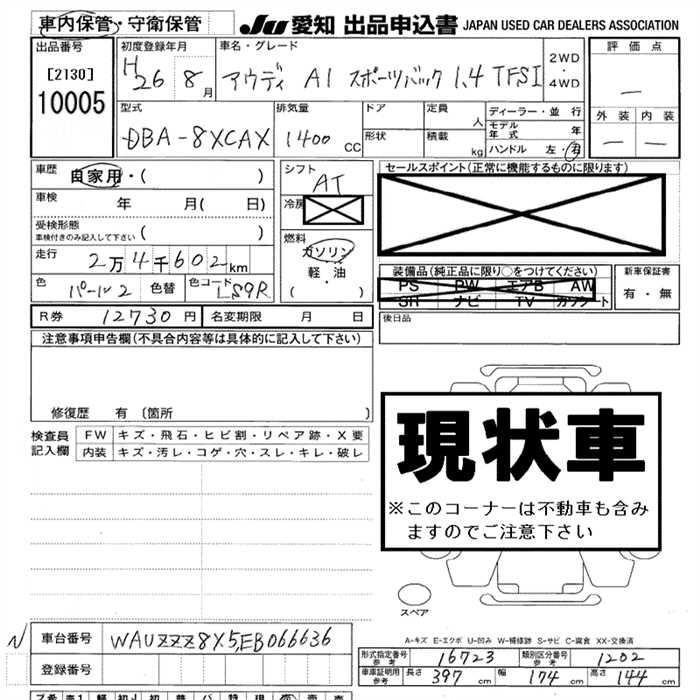 車内保管・守衛保管 JU 愛知 出品申込書 JAPAN USED CAR DEALERS ASSOCIATION
出品番号 初度登録年月 車名・グレード 2WD ・ 4WD 評価点
[2130] H26 8月 アウディ A1 スポーツバック 1.4 TFSI ー
10005
型式 排気量 ドア 定員 人 ディーラー・並行 外装 内装
DBA-8XCAX 1400 CC 形状 積載 kg モデル年式 年
ハンドル 左・右 ー ー
車歴 自家用・( ) シフト AT セールスポイント(正常に機能するものに限ります)
車検 年 月( 日) 冷房
受検形態
車検付きのみ記入して下さい ( ) 燃料 ガソリン
走行 2万4千602km 軽・油 装備品(純正品に限り○をつけてください) 新車保証書
色 パール2 色替 色コード LS9R ・ ( ) PS PW エアB AW 有・無
SR ナビ TV カワシート
R券 12730円 名変期限 月 日 後日品
注意事項申告欄(不具合内容等は具体的に記入して下さい)
修復歴 有〔箇所 〕
現状車
※このコーナーは不動車も含み
ますのでご注意下さい
検査員 FW キズ・飛石・ヒビ割・リペア跡・X要
記入欄 内装 キズ・汚レ・コゲ・穴・スレ・キレ・破レ
スペア
N 車台番号 WAUZZZ8X5EB066636 A-キズ E-エクボ U-凹み W-補修跡 S-サビ C-腐食 XX-交換済
登録番号 形式指定番号 参考 16723 類別区分番号 参考 1202
車庫証明用 参考 長さ 397 cm 幅 174 cm 高さ 144 cm